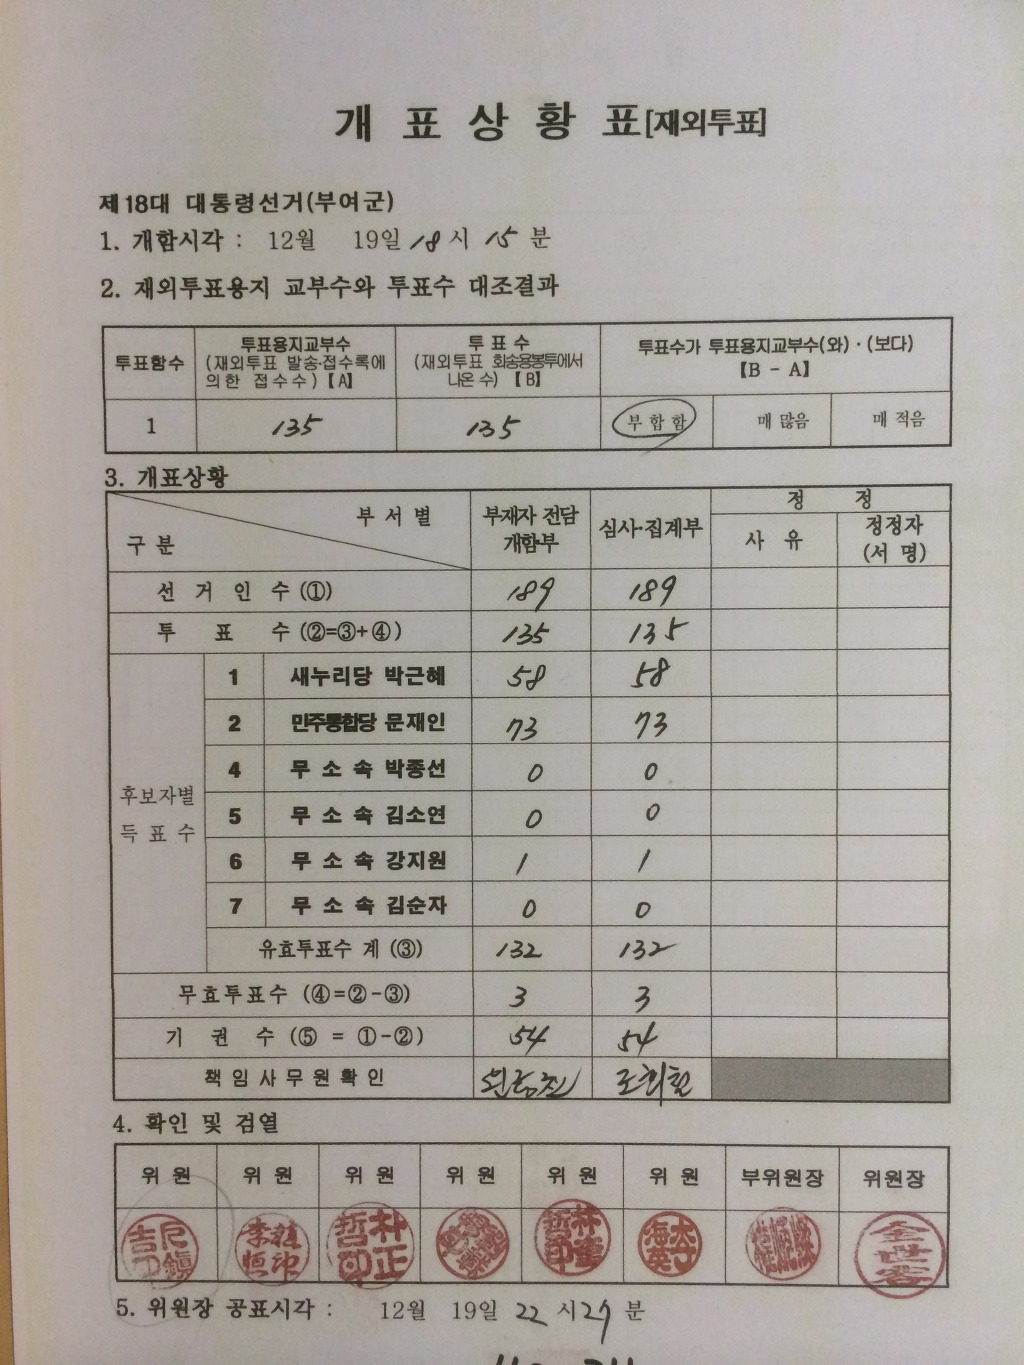 개 표 상 황 표[재외투표]
제18대 대통령선거(부여군)
1. 개함시각 : 12월 19일 18시 15분
2. 재외투표용지 교부수와 투표수 대조결과
투표함수 투표용지교부수 (재외투표 발송·접수록에 의한 접수수)【A】 투 표 수 (재외투표 회송용봉투에서 나온 수)【B】 투표수가 투표용지교부수(와)·(보다) 【B - A】
1 135 135 부합함 매 많음 매 적음
3. 개표상황
구 분 부 서 별 부재자 전담 개함부 심사·집계부 정 정
사 유 정정자 (서 명)
선 거 인 수 (①) 189 189
투 표 수 (②=③+④) 135 135
후보자별 득 표 수
1 새누리당 박근혜 58 58
2 민주통합당 문재인 73 73
4 무 소 속 박종선 0 0
5 무 소 속 김소연 0 0
6 무 소 속 강지원 1 1
7 무 소 속 김순자 0 0
유효투표수 계 (③) 132 132
무효투표수 (④=②-③) 3 3
기 권 수 (⑤ = ①-②) 54 54
책 임 사 무 원 확 인
4. 확인 및 검열
위 원 위 원 위 원 위 원 위 원 위 원 부위원장 위원장
5. 위원장 공표시각 : 12월 19일 22시 27분